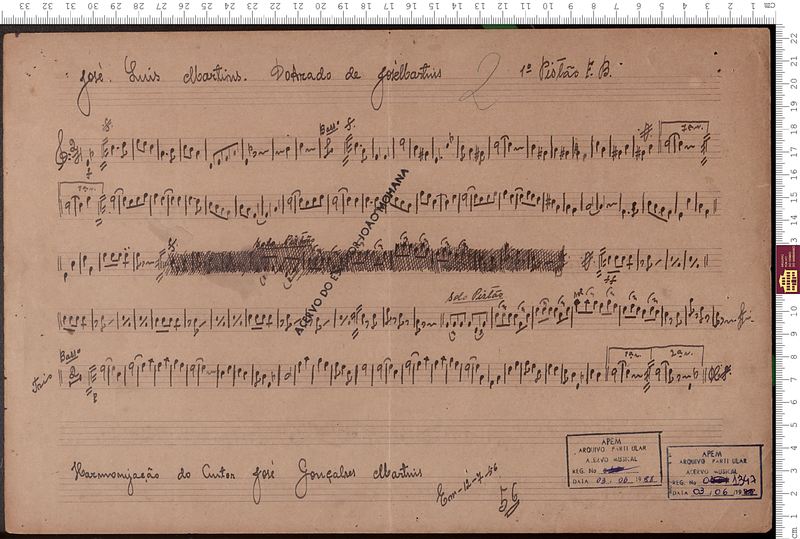 José. Luis Martins. Dobrado de José Martins 2 1º Pistão F. B.
Basso
1ª v.
2ª v.
solo Pistão
ACERVO DO ESCRITOR JOÃO MOHANA
solo Pistão
Trio
Basso
1ª v. 2ª v.
Harmonização do Autor José Gonçalves Martins
Em-12-7-56
56
APEM
ARQUIVO PARTICULAR
ACERVO MUSICAL
REG. No
DATA 03 . 06 . 1988
APEM
ARQUIVO PARTICULAR
ACERVO MUSICAL
REG. No 1347
DATA 03 . 06 . 1988